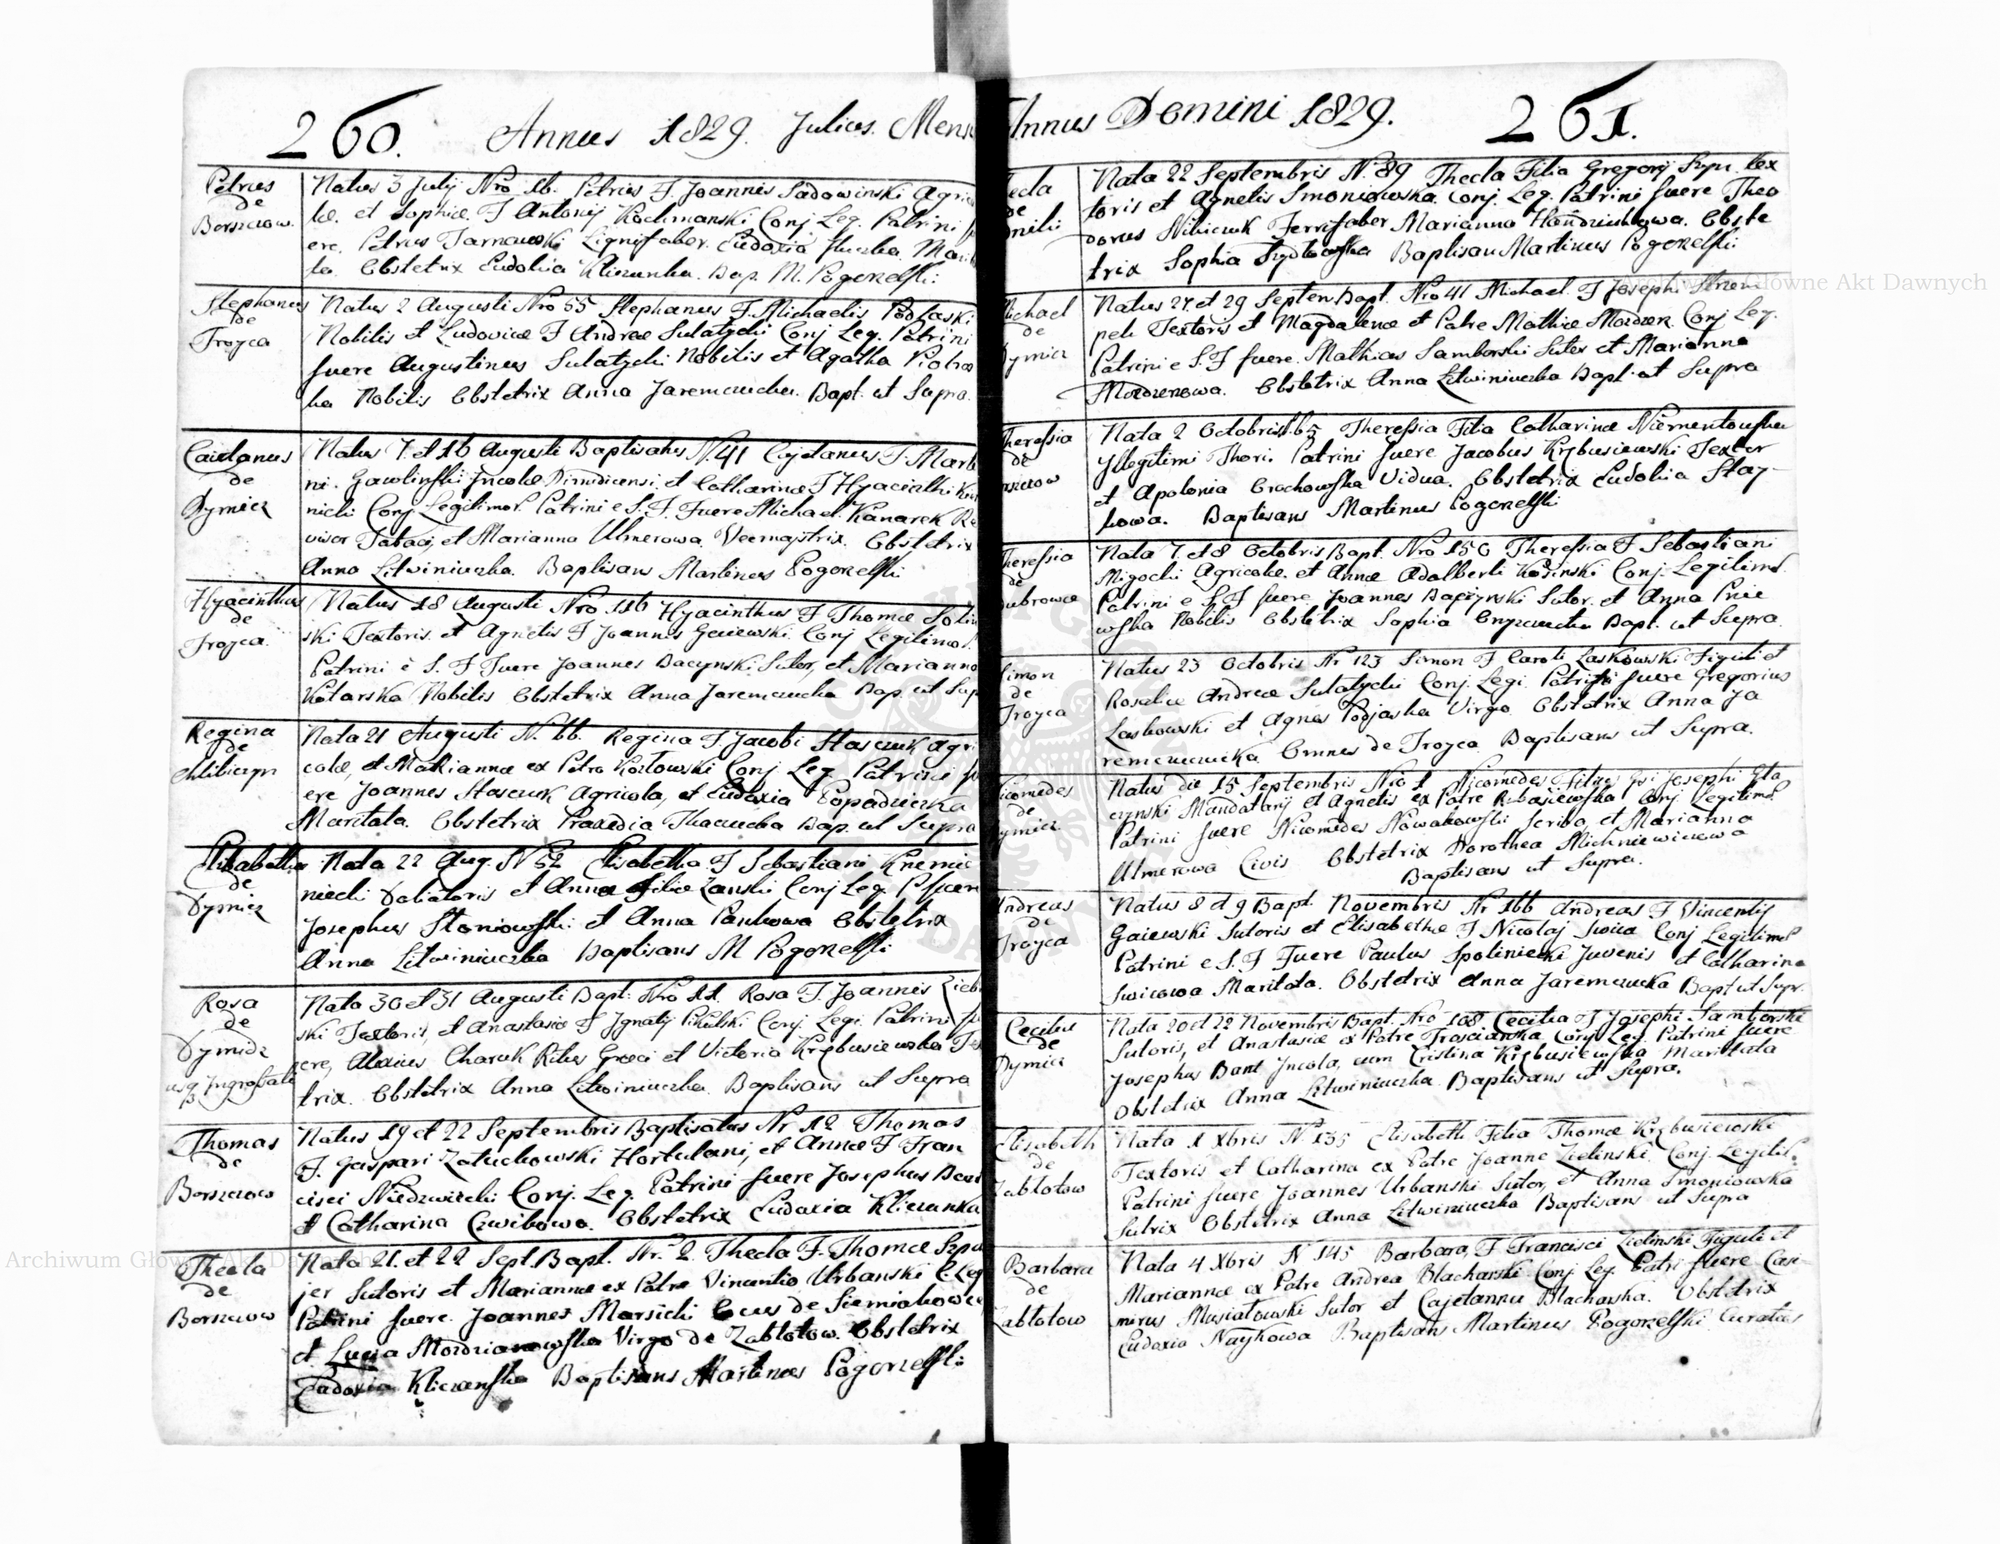 260. Annus 1829. Julius. Mens
Petrus
de
Borszczow.
Natus 3 July Nro 16. Petrus F. Joannis Sadowinski Agri
læ. et Sophiæ. F Antonij Kochmanski Conj. Leg. Patrini fu
ere. Petrus Tarnawski Lignifaber. Eudoxia Marit
ta. Obstetrix Eudokia Kliczunka. Bap. M. Pogorzelski
Stephanus
de
Troyca
Natus 2 Augusti Nro 55 Stephanus F. Michaelis Podlaski
Nobilis et Ludovicæ F Andreæ Sulatycki Conj Leg. Patrini
fuere Augustinus Sulatycki Nobilis et Agatha Piotrow
ka Nobilis Obstetrix Anna Jaremczucka. Bapt. ut Supra.
Caietanus
de
Dymicz
Natus 7. et 16 Augusti Baptisatus N. 41 Cajetanus F. Marti
ni. Gawlinski Incolæ Dimidicensi, et Catharinæ F Hyacinthi
nicki Conj Legitimor. Patrini e S. F. Fuere Michael. Kanarek Re
visor Tabaci, et Marianna Ulmerowa. Obstetrix
Anna Litwiniuczka. Baptisans Martinus Pogorzelski
Hyacinthus
de
Troyca.
Natus 18 Augusti Nro. 116 Hyacinthus F Thomæ
ski Textoris. et Agnetis F Joannis Gaiewski. Conj Legitimor.
Patrini è S. F Fuere Joannes Baczynski Sutor, et Marianna
Kotarska Nobilis Obstetrix Anna Jaremczucka Bap. ut Sup
Regina
de
Chlibiczyn
Nata 21 Augusti N. 66. Regina F Jacobi Stasczuk agri
colæ, et Mariannæ ex Petro Kozlowski Conj Leg Patrini fu
ere Joannes Stasczuk Agricola, et Eudoxia Popadiczka
Maritata. Obstetrix Praxedia Tkaczucka Bap. ut Supra
Elisabetha
de
Dymicz
Nata 22 Aug. N 52 Elisabetha F Sebastiani Krzemie
niecki Doliatoris et Annæ Filiæ Zanski Conj Leg. P fuere
Josephus Stoniowski et Anna Pankowa Obstetrix
Anna Litwiniuczka Baptisans M Pogorzelski
Rosa
de
Dymidz
Nata 30 et 31 Augusti Bapt: Nro 11. Rosa F. Joannis
ski Textoris, et Anastasiæ F Ignatij Pikulski Conj. Legi. Patrini fu
ere, Alexius Charuk Ritus Græci et Victoria Krzbusiewska Tex
trix. Obstetrix Anna Litwiniuczka. Baptisans ut Supra
Thomas
de
Borszczow
Natus 19 et 22 Septembris Baptisatus Nr 12 Thomas
F. Gaspari Zatuchowski Hortulani, et Annæ F Fran
cisci Niedzwiecki Conj. Leg. Patrini fuere Josephus
et Catharina Czwibowa. Obstetrix Eudoxia Kliczunka
Thecla
de
Borszczow
Nata 21. et 22 Sept. Bapt. Nr. 2 Thecla F. Thomæ
jer Sutoris et Mariannæ ex Patre Vincentio Urbanski C. Leg
Patrini fuere. Joannes Marsicki de Siemiakowce
et Lucia Virgo de Zablotow. Obstetrix
Eudoxia Kliczanska Baptisans Martinus Pogorzelski
Annus Domini 1829. 261.
ecla
de
Nata 22 Septembris N. 89 Thecla Filia Gregorij
toris et Agnetis Smoniowska Conj. Leg. Patrini fuere Theo
dorus Nikiczuk Ferrifaber Marianna Obste
trix Sophia Baptisans Martinus Pogorzelski
ichael
de
ymicz
Natus 27. et 29 Septem. Bapt. Nro 41 Michael. F Josephi
peli Textoris et Magdalenæ et Patre Mathiæ Conj Leg.
Patrini e S. F fuere. Mathias Samborski Sutor et Marianna
Obstetrix Anna Litwiniuczka Bapt. ut Supra
heressia
de
Nata 2 Octobris N. 65 Theressia Filia Catharinæ
Yllegitimi Thori. Patrini fuere Jacobus Krzbusiewski Textor
et Apolonia Grochowska Vidua. Obstetrix Eudokia Stay
kowa. Baptisans Martinus Pogorzelski
heressia
de
ubrowce
Nata 7. et 8 Octobris Bapt. Nro 150 Theressia F Sebastiani
Migocki Agricolæ. et Annæ Adalberti Kosinski Conj. Legitimor.
Patrini e S. F fuere Joannes Baczynski Sutor. et Anna
wska Nobilis Obstetrix Sophia Bapt. ut Supra.
imon
de
Troyca
Natus 23 Octobris Nr 123 Simon F Caroli Laskowski Figuli et
Rosaliæ Andreæ Sulatycki Conj. Legi. Patrini fuere Gregorius
Laskowski et Agnes Podjaska Virgo. Obstetrix Anna Ja
remczucka. Omnes de Troyca Baptisans ut Supra.
icomedes
de
ymicz
Natus die 15 Septembris Nro 1 Nicomedes Filius Josephi
czynski Mandatarij et Agnetis ex Patre Conj. Legitimor
Patrini fuere Nicomedes Nowakowski Scriba, et Marianna
Ulmerowa Civis Obstetrix Dorothea Michniewiczowa
Baptisans ut Supra.
Andreas
de
Troyca
Natus 8 et 9 Bapt. Novembris Nr 166 Andreas F Vincentij
Gaiewski Sutoris et Elisabethæ F Nicolaj Conj Legitimor
Patrini e S. F Fuere Paulus Spoliniecki Juvenis et Catharina
Maritata. Obstetrix Anna Jaremczucka Bapt ut Supr.
Cecilia
de
Dymicz
Nata 20 et 22 Novembris Bapt. Nro 108. Cecilia F Josephi Samborski
Sutoris, et Anastasiæ ex Patre Conj Leg. Patrini fuere
Josephus Bant Incola, cum Cristina Krzbusiewska Maritata
Obstetrix Anna Litwiniuczka Baptisans ut Supra.
Elisabeth
de
Zablotow
Nata 1 Xbris N 135 Elisabeth Filia Thomæ Krzbusiewski
Textoris et Catharina ex Patre Joanne Zielinski. Conj. Legitit.
Patrini fuere Joannes Urbanski Sutor, et Anna Smoniowska
Sutrix Obstetrix Anna Litwiniuczka Baptisans ut Supra
Barbara
de
Zablotow
Nata 4 Xbris N 145 Barbara, F Francisci Zielinski Figuli et
Mariannæ ex Patre Andrea Blacharski Conj Leg. Patri fuere Casi
mirus Musiatowski Sutor et Cajetanna Blacharska. Obstetrix
Eudoxia Naykowa Baptisans Martinus Pogorzelski Curatus
Archiwum Główne Akt Dawnych
Archiwum Główne Akt Dawnych